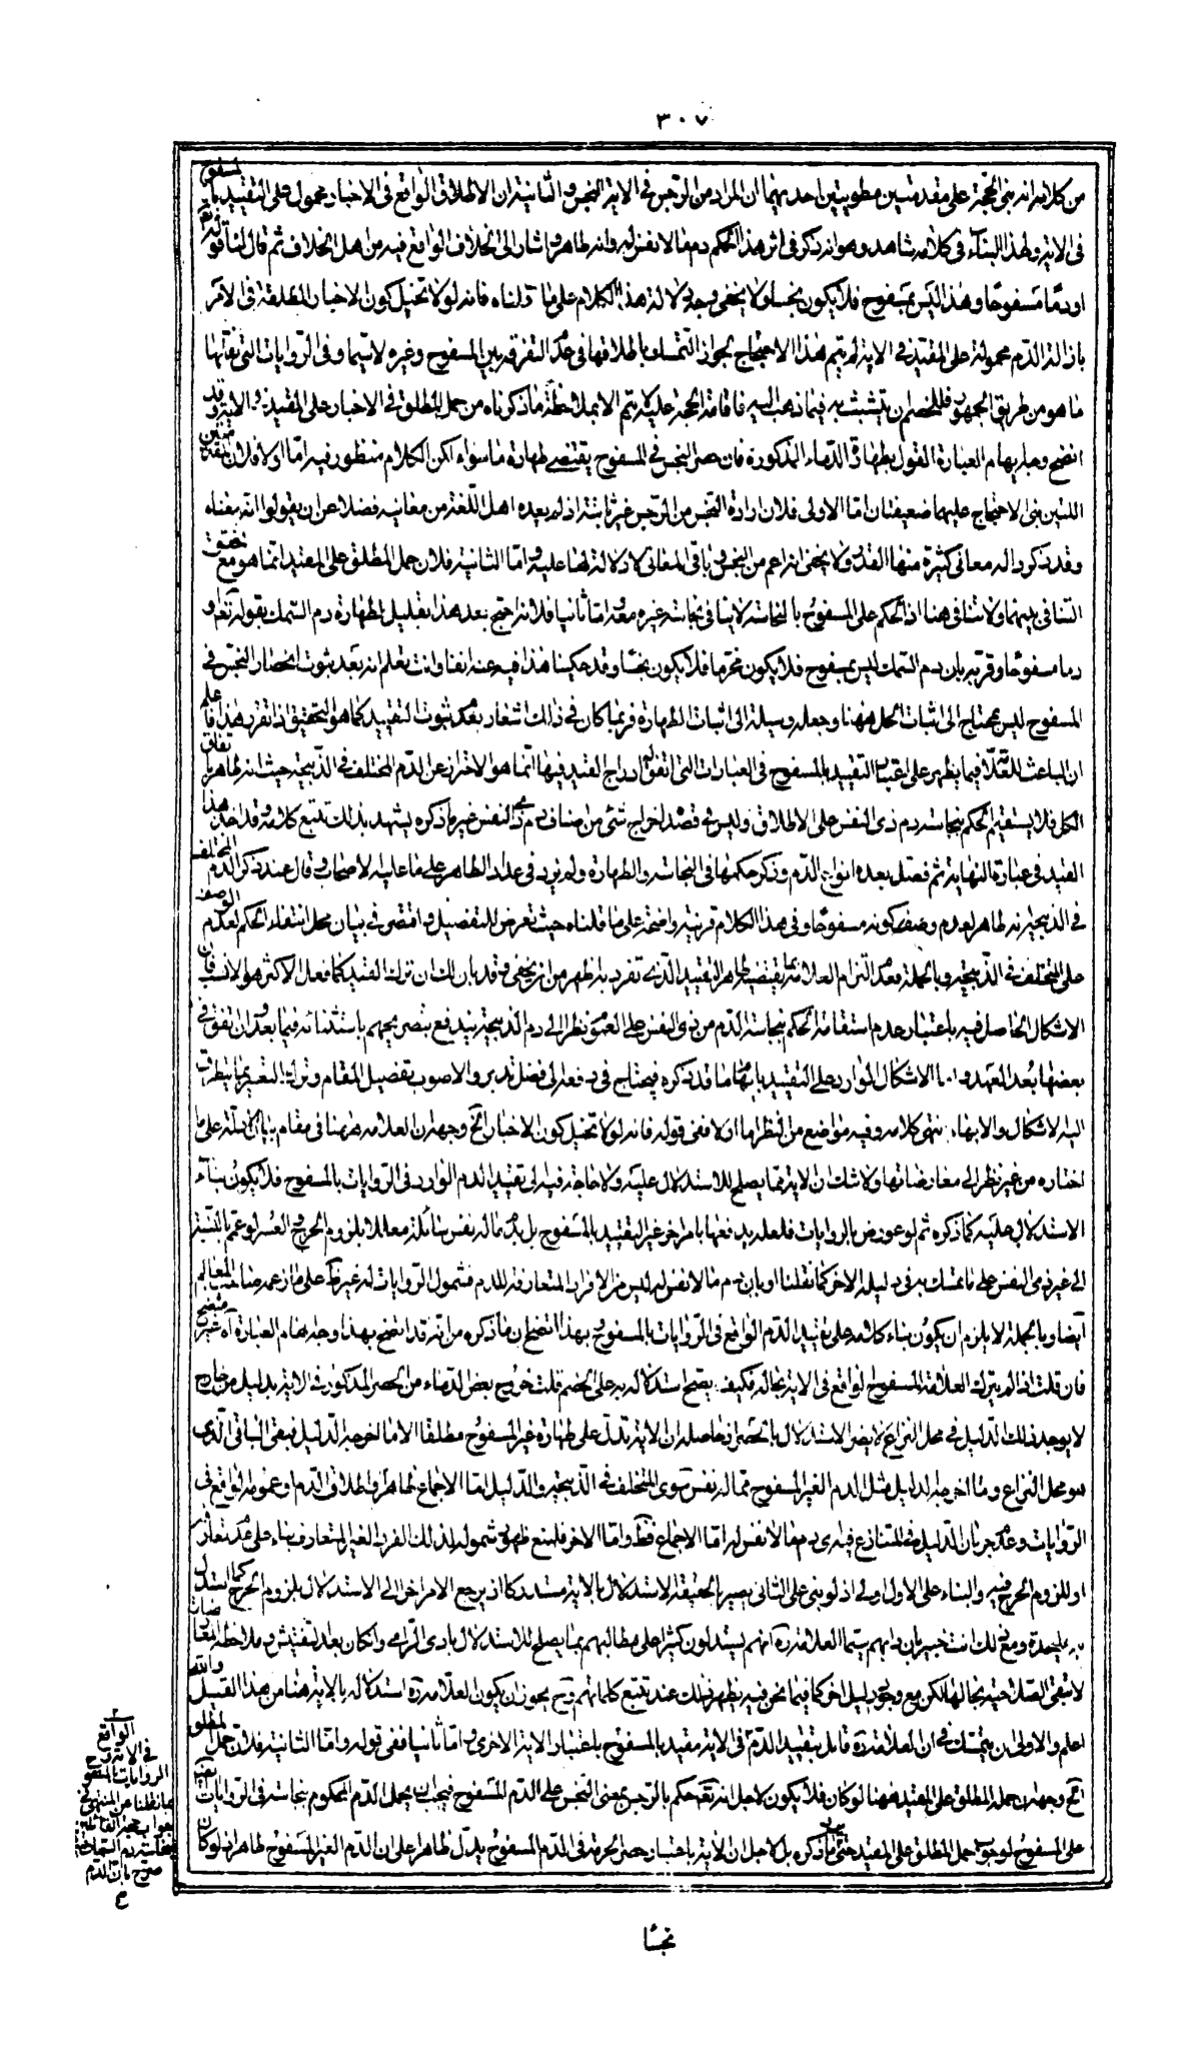 ٣٠٧
من كلامه انه بنى الحجة على مقدمتين مطويتين احديهما ان المراد من الرجس فى الاية النجس والثانية ان الاطلاق الواقع فى الاخبار محمول على التقييد بالمسفوح
فى الاية ولهذا البناء فى كلامه شاهد وهو انه ذكر فى اثر هذا الحكم دم ما لا نفس له وانه طاهر واشار الى الخلاف الواقع فيه من اهل الخلاف ثم قال لنا قوله تعالى
او دما مسفوحا وهذا ليس بمسفوح فلا يكون نجسا ولا يخفى وجه دلالة هذا الكلام على ما قلناه فانه لولا تخيل كون الاخبار المطلقة فى الامر
بازالة الدم محمولة على المقيد فى الاية لم يتم هذا الاحتجاج لجواز التمسك باطلاقها فى عدم التفرقة بين المسفوح وغيره لا سيما وفى الروايات التى نقلتها
ما هو من طريق الجمهور فللخصم ان يتشبث به فيما ذهب اليه فاقامة الحجة عليه لا يتم الا بملاحظة ما ذكرناه من حمل المطلق فى الاخبار على المقيد فى الاية وقد
اتضح وجه ايهام العبارة القول بطهارة الدماء المذكورة فان حصر النجس فى المسفوح يقتضى طهارة ما سواه لكن الكلام منظور فيه اما اولا فلان المقدمتين
اللتين بنى الاحتجاج عليهما ضعيفتان اما الاولى فلان ارادة النجس من الرجس غير ثابتة اذ لم يعده اهل اللغة من معانيه فضلا عن ان يقولوا انه معناه
وقد ذكروا له معانى كثيرة منها القذر ولا يخفى انه اعم من النجس وباقى المعانى لا دلالة لها عليه واما الثانية فلان حمل المطلق على المقيد انما هو مع تحقق
التنافى بينهما ولا تنافى هنا اذ الحكم على المسفوح بالنجاسة لا ينافى نجاسة غيره معه واما ثانيا فلانه احتج بعد هذا بقليل لطهارة دم السمك بقوله تعالى او
دما مسفوحا وقربه بان دم السمك ليس بمسفوح فلا يكون محرما فلا يكون نجسا وقد حكينا هذا فيه عنه انفا وانت تعلم انه بعد ثبوت انحصار النجس فى
المسفوح ليس يحتاج الى اثبات الحل ههنا وجعله وسيلة الى اثبات الطهارة فربما كان فى ذلك اشعار بعدم ثبوت التقييد كما هو التحقيق اذا تقرر هذا فاعلم
ان الباعث للعلامة فيما يظهر على اعتبار التقييد بالمسفوح فى العبارات التى اتفق له ادراج القيد فيها انما هو الاحتراز عن الدم المختلف فى الذبيحة حيث انه طاهر باتفاق
الكل فلا يستقيم الحكم بنجاسة دم ذى النفس على الاطلاق وليس فى قصده اخراج شئ من اصناف دم ذى النفس غير ما ذكره يشهد بذلك تتبع كلامه وقد اخذ هذا
القيد فى عبارة النهاية ثم فصل بعده انواع الدم وذكر حكمها فى النجاسة والطهارة ولم يزد فى عداد الطاهر على ما عليه الاصحاب وقال عند ذكر الدم المختلف
فى الذبيحة انه طاهر لعدم وصف كونه مسفوحا وفى هذا الكلام قرينة واضحة على ما قلناه حيث تعرض للتفصيل واقتصر فى بيان محل انتفاء الحكم لعدم الوصف
على المتخلف فى الذبيحة وبالجملة فعدم التزام العلامة بما يقتضيه ظاهر التقييد الذى تفرد به اظهر من ان يخفى وقد بان لك ان ترك القيد كما فعل الاكثر هو الانسب فان
الاشكال الحاصل فيه باعتبار عدم استقامة الحكم بنجاسة الدم من ذى النفس على العموم نظرا الى دم الذبيحة يندفع بتصريحهم باستثنائه فيما بعد وان تفق فى
بعضها بعد العهد واما الاشكال الوارد على التقييد بايهام ما قد ذكره فيحتاج فى دفعه الى فضل تدبر والاصوب تفصيل المقام وترك التعبير بما يتطرق
اليه الاشكال والايهام انتهى كلامه وفيه مواضع من النظر اما اولا ففى قوله فانه لولا تخيل كون الاخبار الخ وجهه ان العلامة ههنا فى مقام بيان الادلة على ما
اختاره من غير نظر الى معارضاتها ولا شك ان الاية مما يصلح للاستدلال عليه ولا حاجة فيه الى تقييد الدم الوارد فى الروايات بالمسفوح فلا يكون بناء
الاستدلال عليه كما ذكره ثم لو عورض بالروايات فلعله يدفعها بامر اخر غير التقييد بالمسفوح بل بدم ما له نفس سائلة معللا بلزوم الحرج والعسر لو عمم بالنسبة
الى غير ذى النفس على ما تمسك به فى دليله الاخر كما نقلنا او بان دم ما لا نفس له ليس من الافراد المتعارفة للدم فشمول الروايات له غير على ما زعمه صاحب المعالم
ايضا وبالجملة لا يلزم ان يكون بناء كلامه على تقييد الدم الواقع فى الروايات بالمسفوح وبهذا اتضح ان ما ذكره من انه قد اتضح بهذا وجه ايهام العبارة اه غير متضح
فان قلت اذا لم يترك العلامة المسفوح الواقع فى الاية بحاله فكيف يصح استدلاله به على الخصم قلت خروج بعض الدماء من الحصر المذكور فى الاية بدليل من خارج
لا يوجد ذلك الدليل فى محل النزاع لا يضر الاستدلال بالحصر اذ حاصله ان الاية تدل على طهارة غير المسفوح مطلقا الا ما اخرجه الدليل فبقى الباقى الذى
هو محل النزاع وما اخرجه الدليل مثل الدم الغير المسفوح مما له نفس سوى المتخلف فى الذبيحة والدليل اما الاجماع او ظاهر اطلاق الدم او عمومه الواقع فى
الروايات وعدم جريان الدليل فى المتنازع فيه اى دم ما لا نفس له اما الاجماع فظ واما الاخر فلمنع ظهور شموله لذلك الفرد الغير المتعارف بناء على عدم تعارفه
او للزوم الحرج فيه والبناء على الاول اولى اذ لو بنى على الثانى يصير بالحقيقة الاستدلال بالاية مستدركا اذ يرجع الامر اخر الى الاستدلال بلزوم الحرج كما استدل
به عليحدة ومع ذلك انت خبير بان دابهم سيما العلامة ره انهم يستدلون كثيرا على مطالبهم بما يصلح للاستدلال بادى الراى وان كان بعد التفتيش وملاحظة المعارضات
لا تبقى الصلاحية بحالها لكن مع وجود دليل اخر كما فيما نحن فيه يظهر ذلك عند تتبع كلماتهم وح يجوز ان يكون العلامة ره استدلاله بالاية هنا من هذا القبيل والله
اعلم والاولى ان يتمسك فى ان العلامة ره قائل بتقييد الدم فى الاية مقيد بالمسفوح باعتبار الاية الاخرى واما ثانيا ففى قوله واما الثانية فلان حمل المطلق
الخ وجهه ان حمله المطلق على المقيد ههنا لو كان فلا يكون لاجل انه تعالى حكم بالرجس بمعنى النجس على الدم المسفوح فيجب ان يحمل الدم المحكوم بنجاسته فى الروايات
على المسفوح لوجوب حمل المطلق على المقيد حتى يرد ما ذكره بل لاجل ان الاية باعتبار حصر الحرمة فى الدم المسفوح يدل ظاهرا على ان الدم الغير المسفوح طاهر اذ لو كان
نجسا
الواقع
فى الاية وح
الروايات
صرح بان الدم